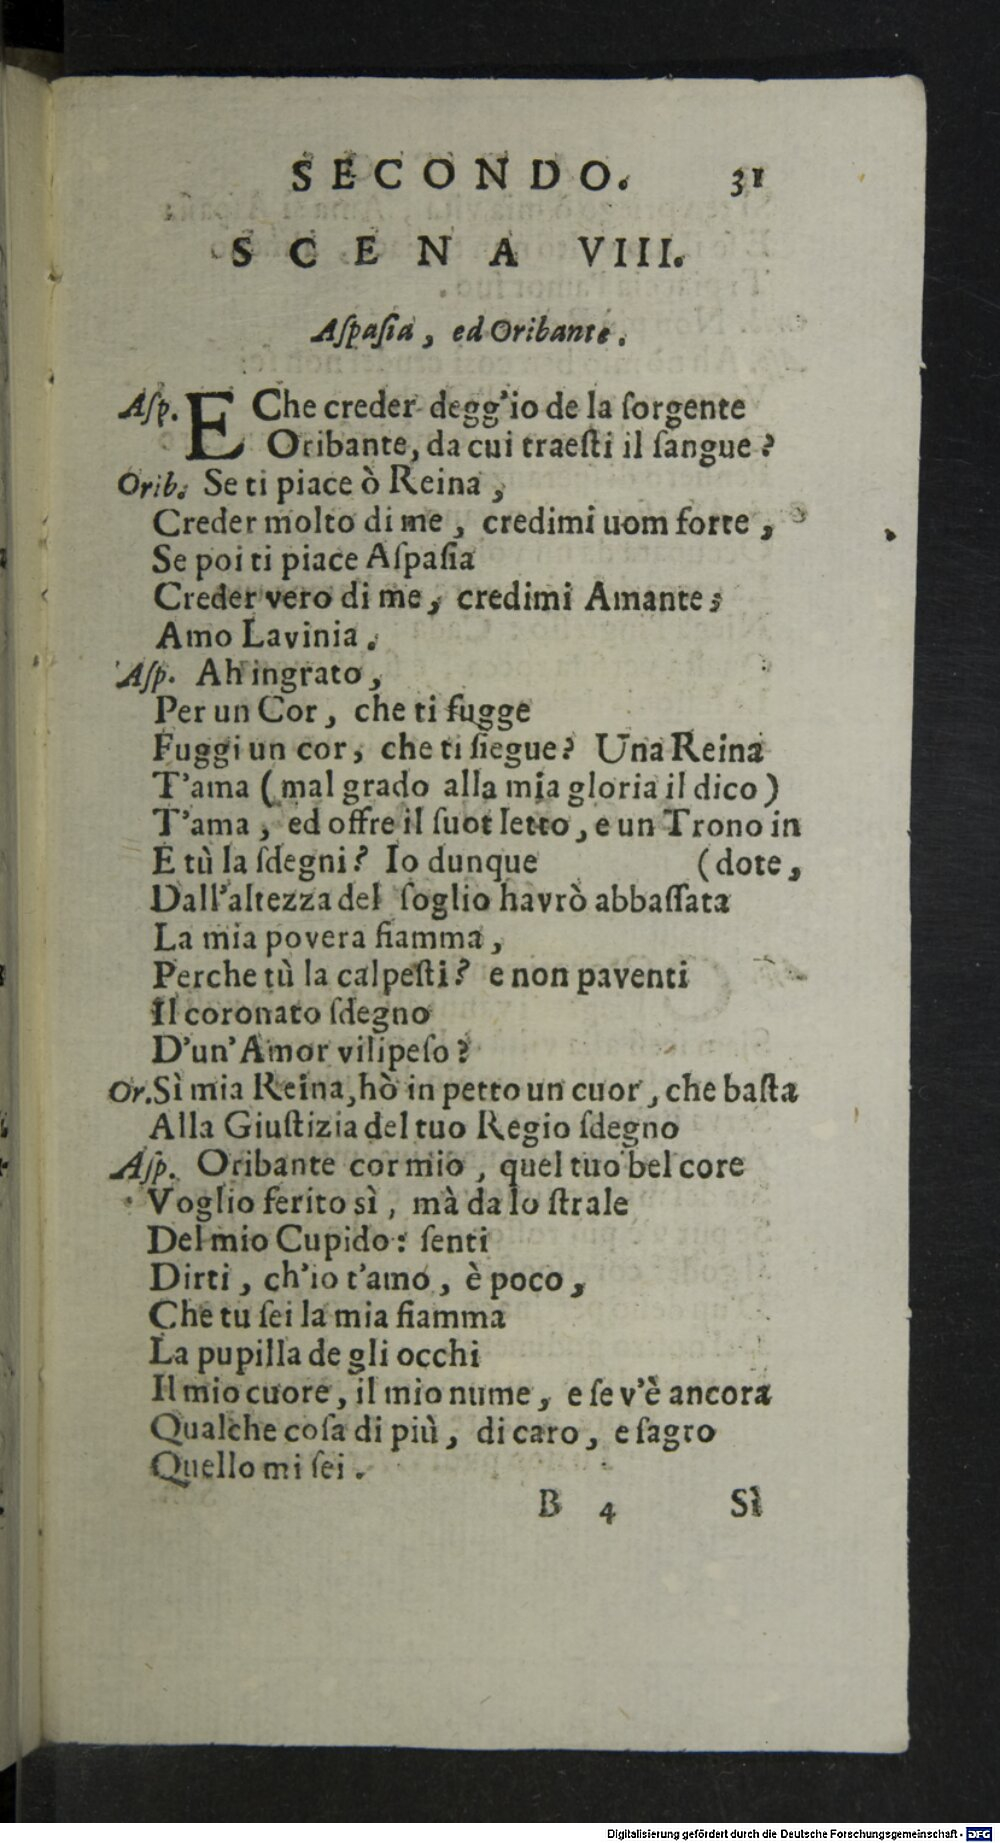 SECONDO. 31
SCENA VIII.
Aſpaſia, ed Oribante.
Aſp. E Che creder degg'io de la ſorgente
Oribante, da cui traeſti il ſangue?
Orib. Se ti piace ò Reina,
Creder molto di me, credimi uom forte,
Se poi ti piace Aſpaſia
Creder vero di me, credimi Amante;
Amo Lavinia.
Aſp. Ah ingrato,
Per un Cor, che ti fugge
Fuggi un cor, che ti ſiegue? Una Reina
T'ama (mal grado alla mia gloria il dico)
T'ama, ed offre il ſuot letto, e un Trono in
E tù la ſdegni? Io dunque (dote,
Dall'altezza del ſoglio havrò abbaſſata
La mia povera fiamma,
Perche tù la calpeſti? e non paventi
Il coronato ſdegno
D'un'Amor vilipeſo?
Or. Sì mia Reina, hò in petto un cuor, che baſta
Alla Giuſtizia del tuo Regio ſdegno
Aſp. Oribante cor mio, quel tuo bel core
Voglio ferito sì, mà da lo ſtrale
Del mio Cupido: ſenti
Dirti, ch'io t'amo, è poco,
Che tu ſei la mia fiamma
La pupilla de gli occhi
Il mio cuore, il mio nume, e ſe v'è ancora
Qualche coſa di più, di caro, e ſagro
Quello mi ſei.
B 4 Sì
Digitalisierung gefördert durch die Deutsche Forschungsgemeinschaft - DFG